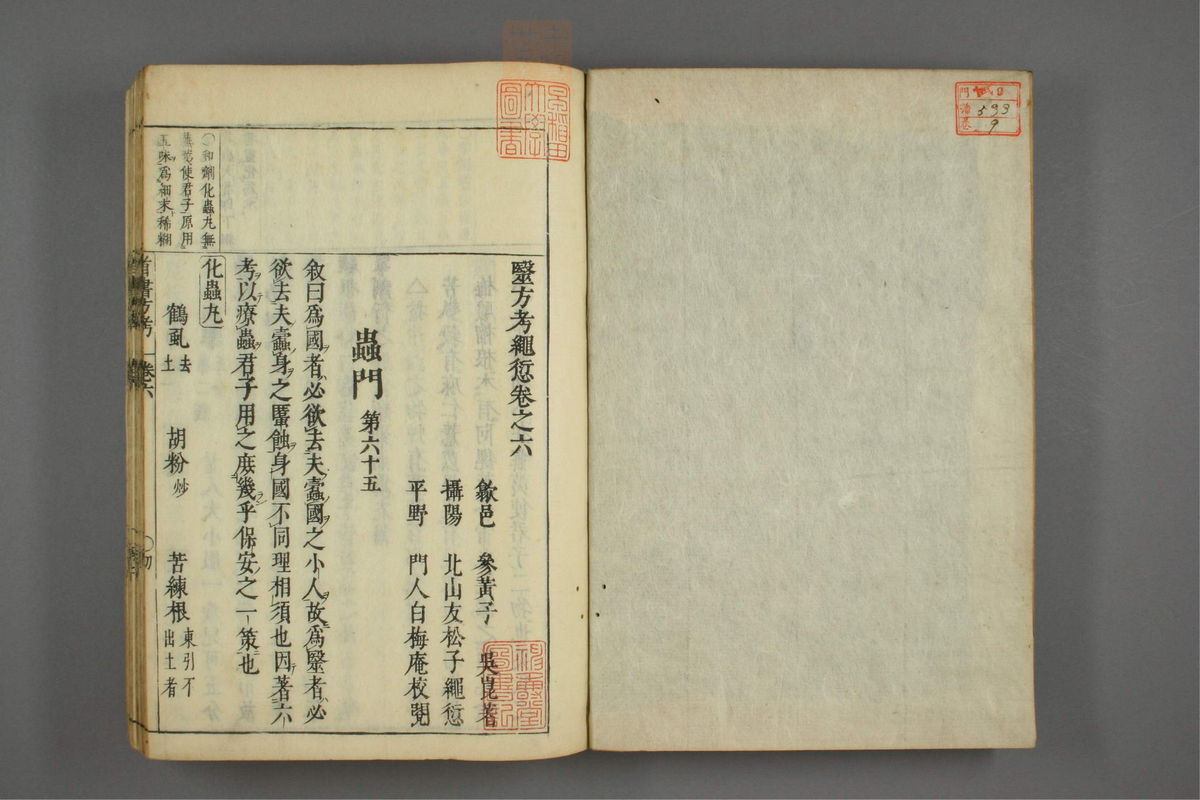 門
593
9
早稲田
大學
圖書
醫方考繩愆卷之六
歙邑 參黃子 吳崑著
攝陽 北山友松子繩愆
平野 門人白梅庵校閱
蟲門 第六十五
敘曰爲國者必欲去夫蠹國之小人故爲醫者必
欲去夫蠹身之䘌蝕身國不同理相須也因著六
考以療蟲君子用之庶幾乎保安之一策也
化蟲丸
鶴虱 去土 胡粉 炒 苦練根 東引不出土者
〇和劑化蟲丸無
蕪荑使君子原用
五味爲細末稀糊